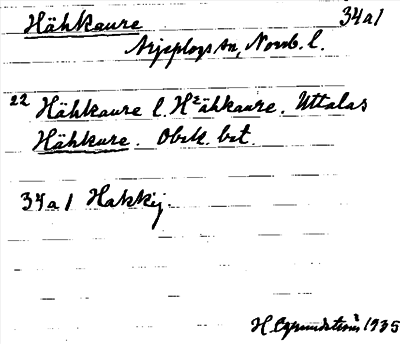 Hähkaure 34a1
Arjeplogs sn, Norrb. l.
22 Hähkaure l. H²ähkaure. Uttalas
Hähkaure. Obek. bet.
34a1 Hakkij.
H. Grundström 1935